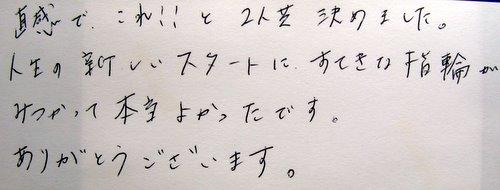 直感で、これ!!と 2人共 決めました。
人生の 新しい スタートに すてきな 指輪が
みつかって 本当 よかったです。
ありがとうございます。